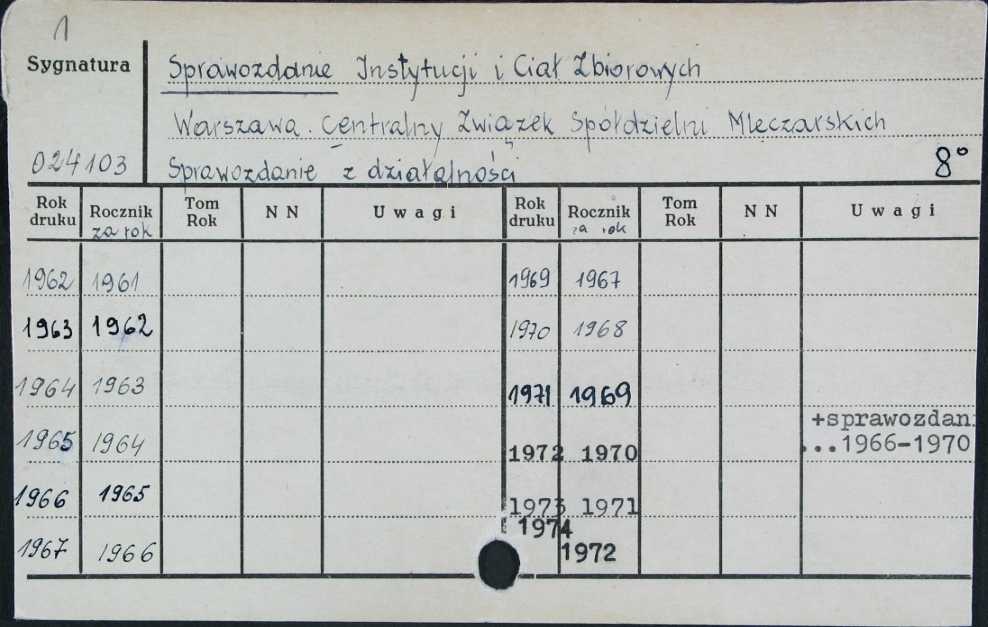 1
Sygnatura
Sprawozdanie Instytucji i Ciał Zbiorowych
Warszawa. Centralny Związek Spółdzielni Mleczarskich
024103
Sprawozdanie z działalności
8°
Rok druku Rocznik za rok Tom Rok N N Uwagi Rok druku Rocznik za rok Tom Rok N N Uwagi
1962 1961 1969 1967
1963 1962 1970 1968
1964 1963 1971 1969
+sprawozdani
1965 1964 1972 1970 ...1966-1970
1966 1965 1973 1971
1974
1967 1966 1972